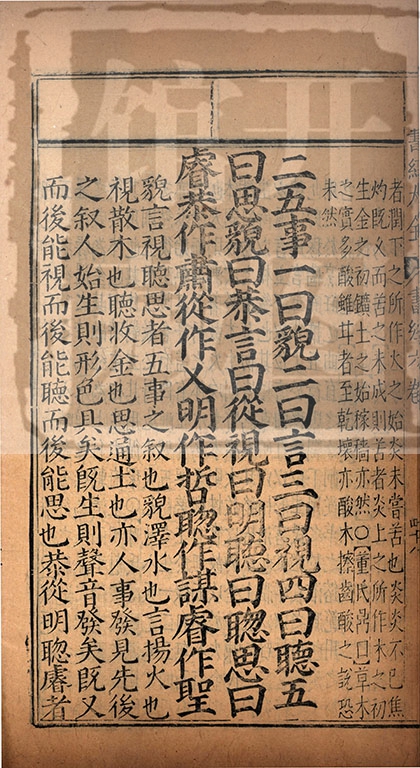 者潤下之所作火之始炎未嘗苦也炎炎不已焦
灼旣乆而苦之未成則苦者炎上之所作木之初
生金之初鑛土之始稼穡亦然○董氏鼎曰草木
之實多酸雖甘者至乾壞亦酸木擦齒酸之說恐
未然
二五事一曰貌二曰言三曰視四曰聽五
曰思貌曰恭言曰從視曰明聽曰聦思曰
睿恭作肅從作乂明作哲聦作謀睿作聖
貌言視聽思者五事之叙也貌澤水也言揚火也
視散木也聽收金也思通土也亦人事發見先後
之叙人始生則形色具矣旣生則聲音發矣旣又
而後能視而後能聽而後能思也恭從明聦睿者